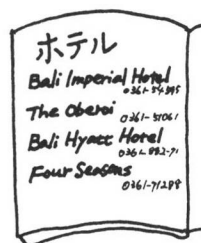 ホテル
Bali Imperial Hotel
The Oberoi
0361-51061
Bali Hyatt Hotel
Four Seasons
0361-71288